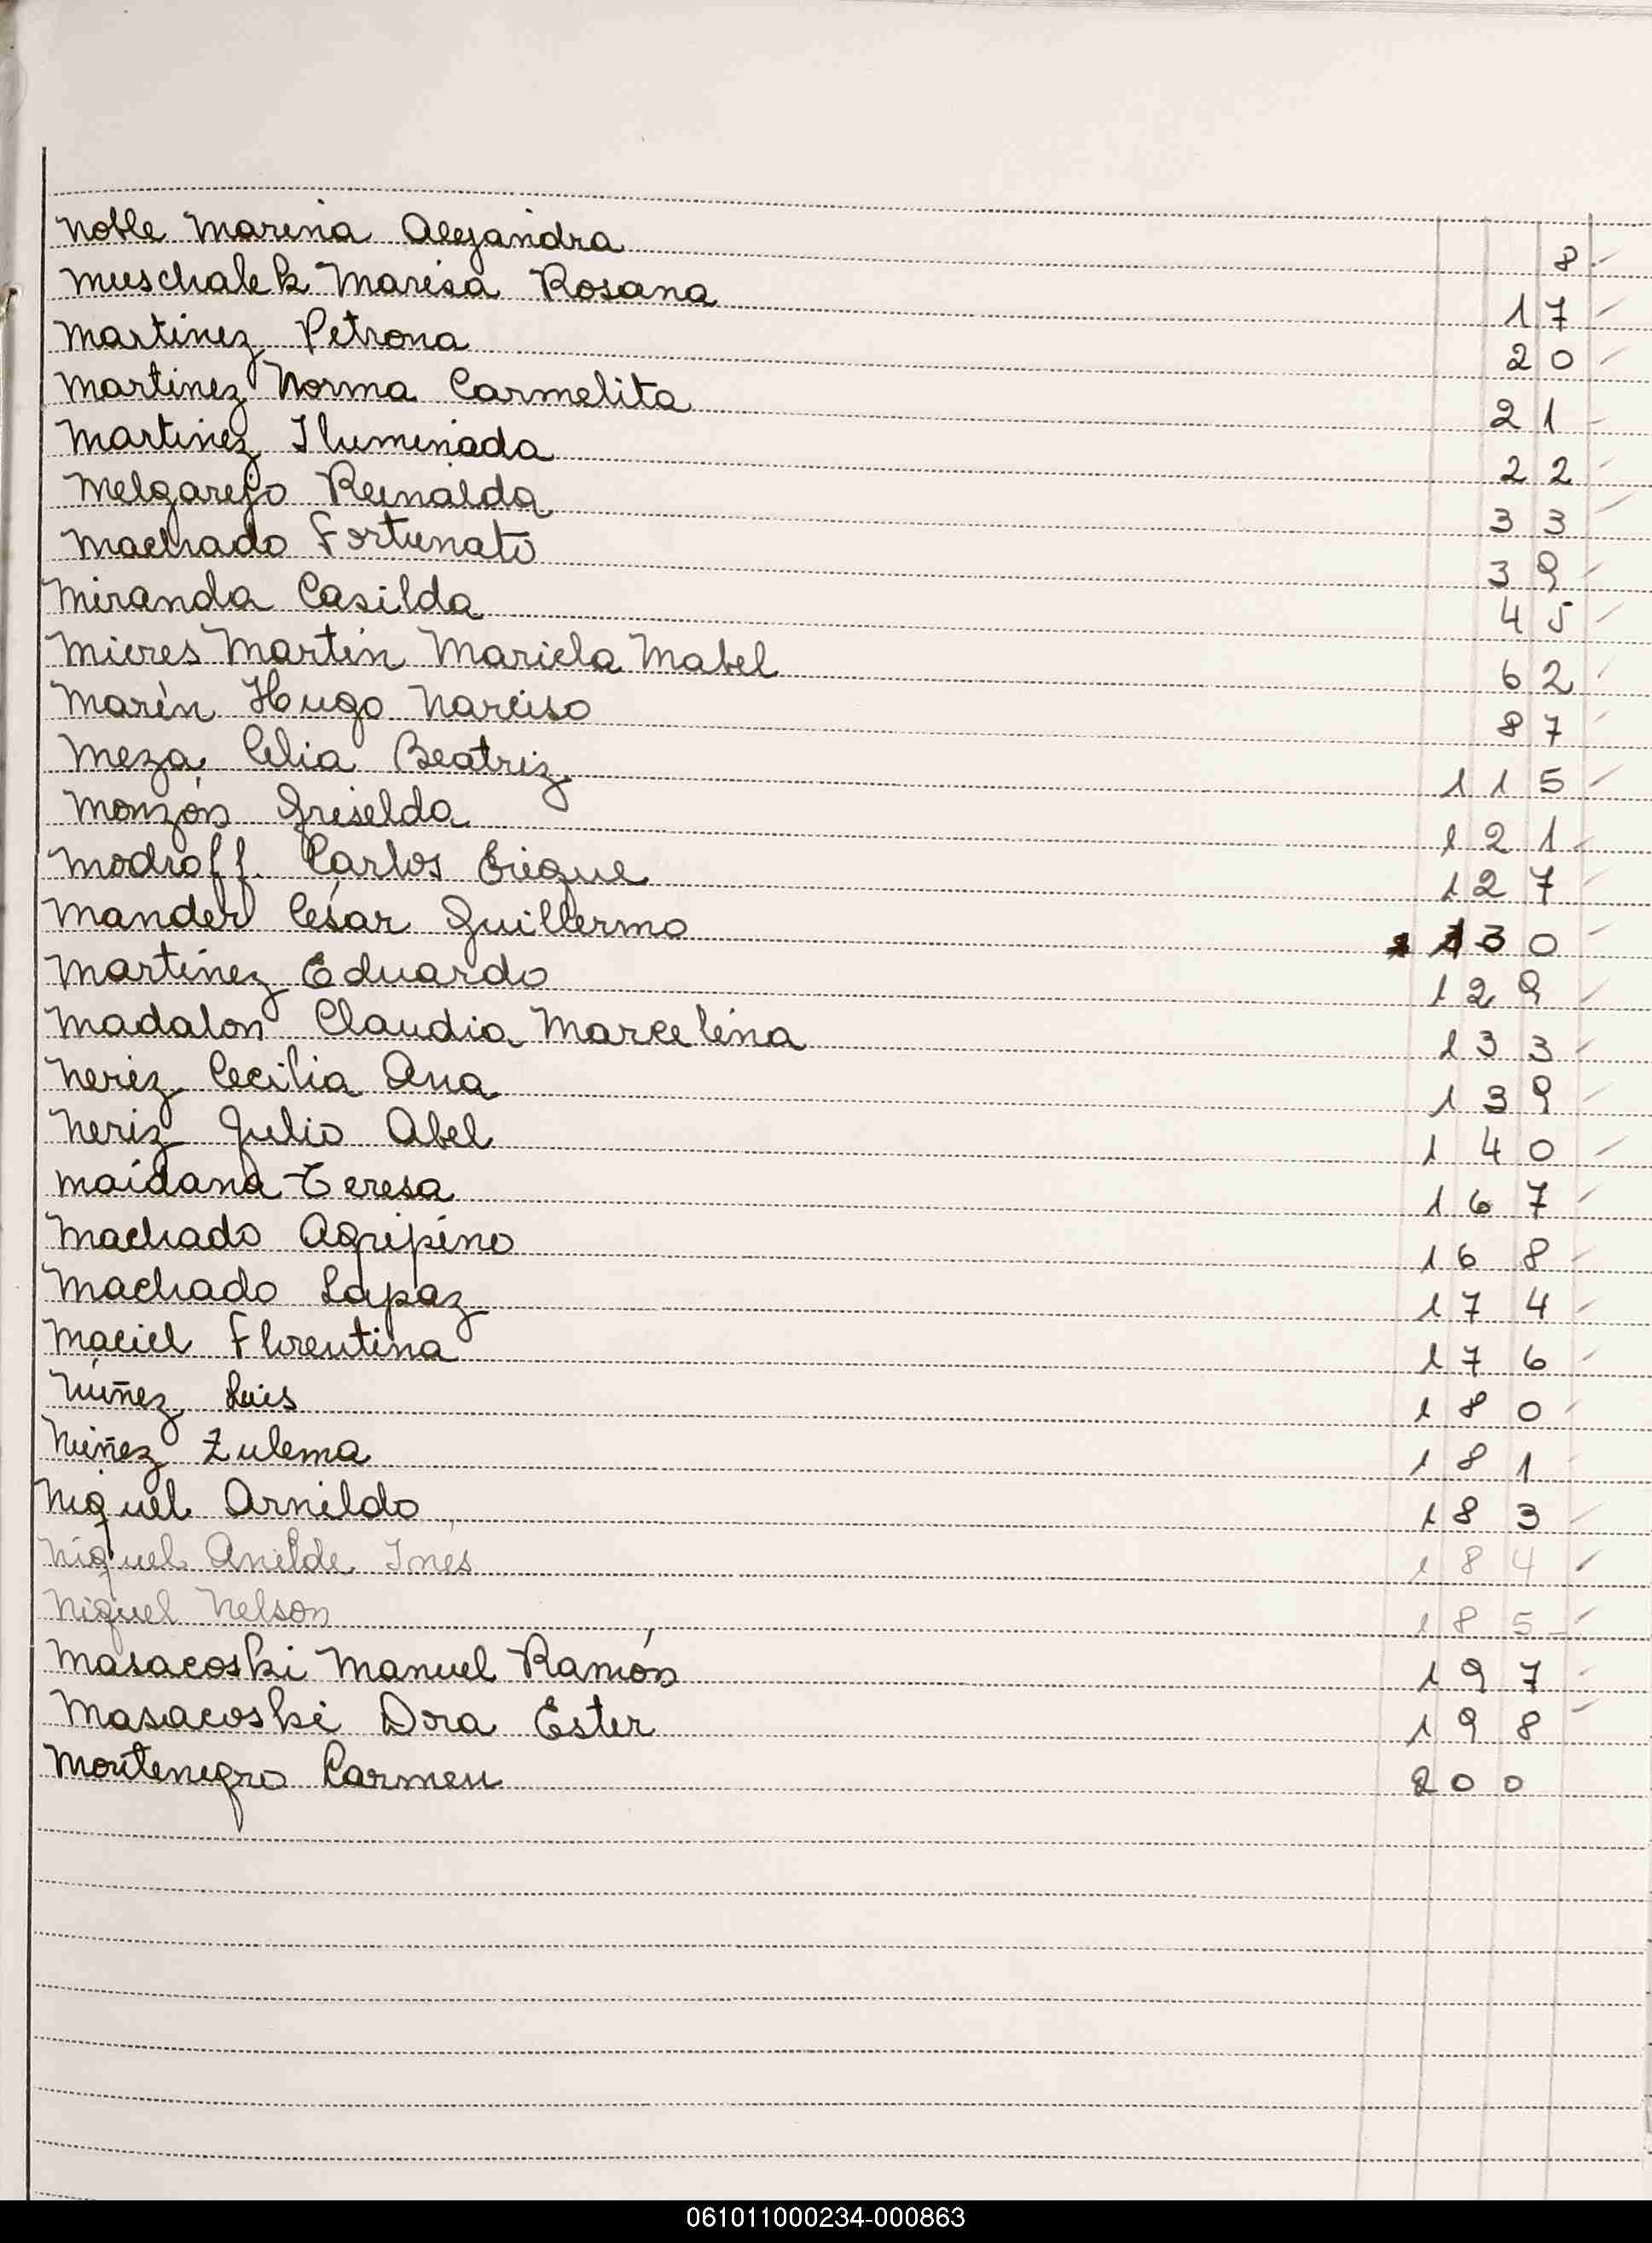 Noble Marina Alejandra 8
Muschalek Marisa Rosana 17
Martinez Petrona 20
Martinez Norma Carmelita 21
Martinez Iluminada 22
Melgarejo Reinalda 33
Machado Fortunato 39
Miranda Casilda 45
Mieres Martin Mariela Mabel 62
Marín Hugo Narciso 87
Meza Celia Beatriz 115
Monzón Griselda 121
Modroff Carlos Erique 127
Mander César Guillermo 130
Martinez Eduardo 129
Madalon Claudia Marcelina 133
Neriz Cecilia Ana 139
Neriz Julio Abel 140
Maidana Teresa 167
Machado Agripino 168
Machado Lapaz 174
Maciel Florentina 176
Núñez Luis 180
Núñez Zulema 181
Niquel Arnildo 183
Niquel Anilde Inés 184
Niquel Nelson 185
Masacoski Manuel Ramón 197
Masacoski Dora Ester 198
Montenegro Carmen 200
061011000234-000863